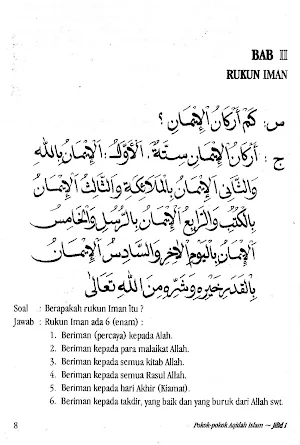 BAB II
RUKUN IMAN
س: كَمْ أَرْكَانُ الْإِيْمَانِ؟
ج: أَرْكَانُ الْإِيْمَانِ سِتَّةٌ. اَلْأَوَّلُ: اَلْإِيْمَانُ بِاللهِ
وَالثَّانِى الْإِيْمَانُ بِالْمَلَائِكَةِ وَالثَّالِثُ الْإِيْمَانُ
بِالْكُتُبِ وَالرَّابِعُ الْإِيْمَانُ بِالرُّسُلِ وَالْخَامِسُ
الْإِيْمَانُ بِالْيَوْمِ الْآخِرِ وَالسَّادِسُ الْإِيْمَانُ
بِالْقَدَرِ خَيْرِهِ وَشَرِّهِ مِنَ اللهِ تَعَالَى
Soal : Berapakah rukun Iman itu ?
Jawab : Rukun Iman ada 6 (enam) :
1. Beriman (percaya) kepada Alah.
2. Beriman kepada para malaikat Allah.
3. Beriman kepada semua kitab Allah.
4. Beriman kepada semua Rasul Allah.
5. Beriman kepada hari Akhir (Kiamat).
6. Beriman kepada takdir, yang baik dan yang buruk dari Allah swt.
8 Pokok-pokok Aqidah Islam — Jilid I